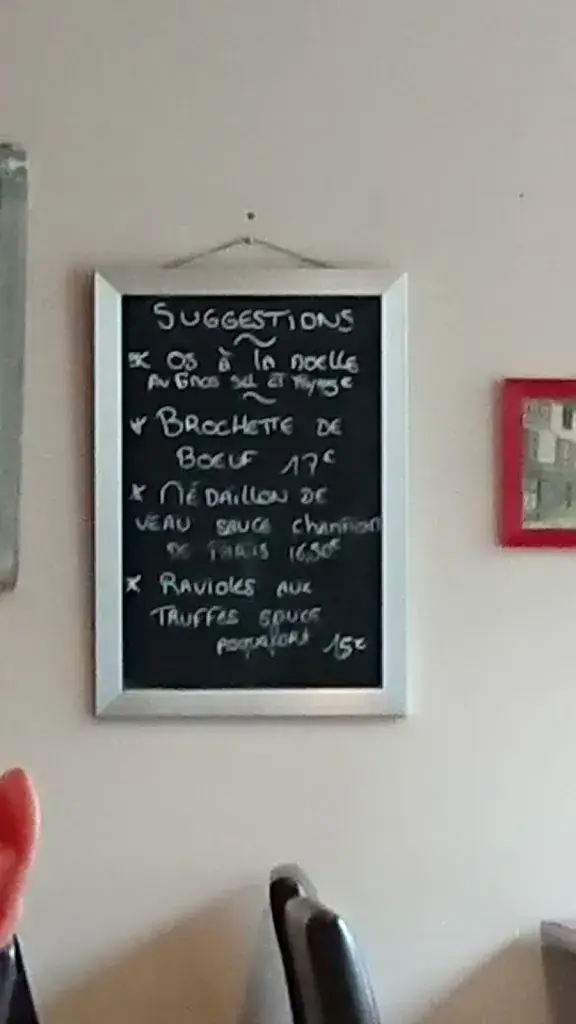 SUGGESTIONS
* OS à la noelle
AU GROS SEL ET
* BROCHETTE DE
BOEUF 17€
* MÉDAILLON DE
VEAU SAUCE champion
DE PARIS 16,50€
* RAVIOLES AUX
TRUFFES SAUCE
ROQUEFORT 15€